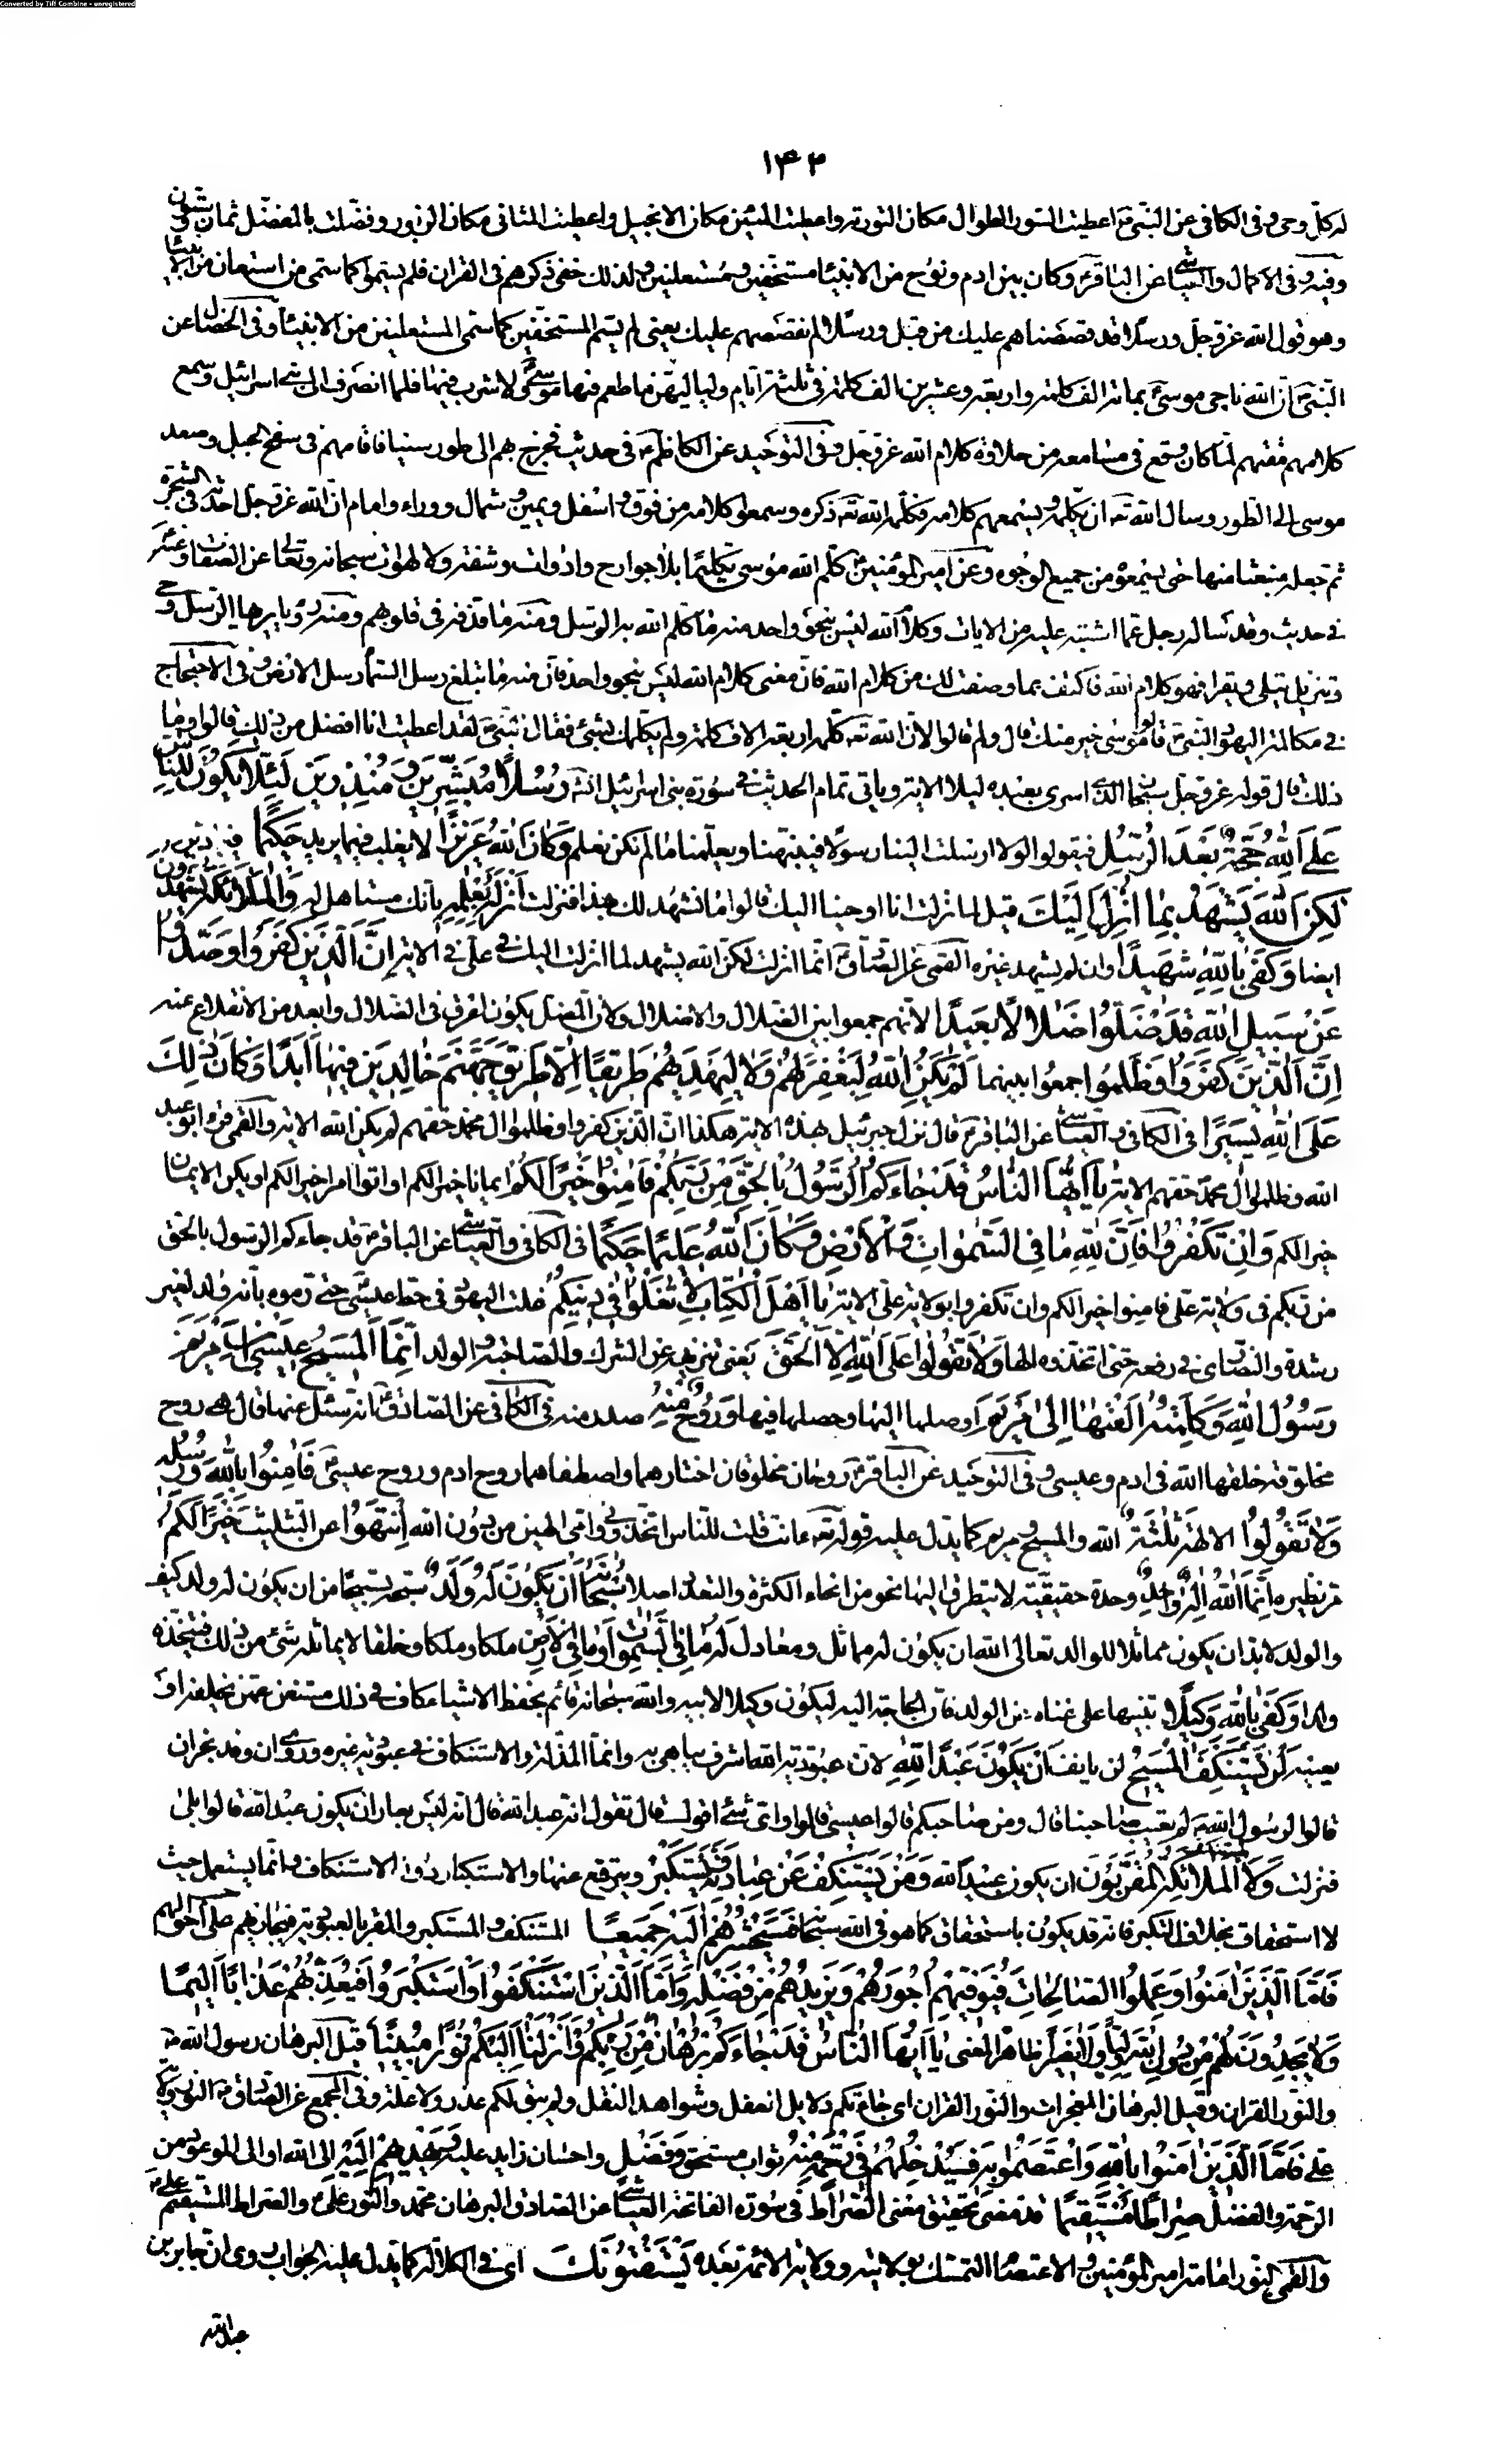 Converted by Tiff Combine - unregistered
١٤٢
له كل وحى و فى الكافى عن النبى ص اعطيت السور الطوال مكان التورية واعطيت المئين مكان الانجيل واعطيت المثانى مكان الزبور وفضلت بالمفصل ثمان وستون
وفيه و فى الاكمال والعياشى عن الباقر ع وكان بين ادم ونوح من الانبياء مستخفين ومستعلنين ولذلك خفى ذكرهم فى القران فلم يسموا كما سمى من استعلن من الانبياء
وهو قول الله عز وجل ورسلا قد قصصناهم عليك من قبل ورسلا لم نقصصهم عليك يعنى لم يسم المستخفين كما سمى المستعلنين من الانبياء وفى الخصال عن
النبى ص ان الله ناجى موسى ع بمائة الف كلمة واربعة وعشرين الف كلمة فى ثلثة ايام ولياليهن ما طعم فيها موسى ع ولا شرب فيها فلما انصرف الى بنى اسرائيل وسمع
كلامهم مقتهم لما كان وقع فى مسامعه من حلاوة كلام الله عز وجل وفى التوحيد عن الكاظم ع فى حديث فخرج بهم الى طور سينا فاقامهم فى سفح الجبل وصعد
موسى الى الطور وسال الله تع ان يكلمه ويسمعهم كلامه فكلمه الله تع ذكره وسمعوا كلامه من فوق واسفل ويمين وشمال ووراء وامام ان الله عز وجل احدثه فى الشجرة
ثم جعله منبعثا منها حتى يسمعوه من جميع الوجوه وعن امير المؤمنين ع كلم الله موسى تكليما بلا جوارح وادوات وشفة ولا لهوات سبحانه وتعالى عن الصفات وعنه ع
فى حديث وقد ساله رجل عما اشتبه عليه من الايات وكلام الله ليس بنحو واحد منه ما كلم الله به الرسل ومنه ما قذفه فى قلوبهم ومنه رؤيا يريها الرسل ومنه وحى
وتنزيل يتلى ويقرا فهو كلام الله فاكتف بما وصفت لك من كلام الله فان معنى كلام الله ليس بنحو واحد فان منه ما تبلغ رسل السماء رسل الارض وفى الاحتجاج
فى مكالمة اليهود النبى ص قالوا موسى خير منك قال ولم قالوا لان الله تع كلمه اربعة الاف كلمة ولم يكلمك بشئ فقال النبى ص لقد اعطيت انا افضل من ذلك قالوا وما
ذلك قال قوله عز وجل سبحان الذى اسرى بعبده ليلا الاية وياتى تمام الحديث فى سورة بنى اسرائيل انش رُسُلًا مُبَشِّرِينَ وَمُنْذِرِينَ لِئَلَّا يَكُونَ لِلنَّاسِ
عَلَى اللهِ حُجَّةٌ بَعْدَ الرُّسُلِ فيقولوا لولا ارسلت الينا رسولا فينبهنا ويعلمنا ما لم نكن نعلم وَكَانَ اللهُ عَزِيزًا لا يغلب فيما يريد حَكِيمًا فيما دبر
لكِنِ اللهُ يَشْهَدُ بِمَا اُنْزِلَ اِلَيْكَ قيل لما نزلت انا اوحينا اليك قالوا ما نشهد لك بهذا فنزلت اَنْزَلَهُ بِعِلْمِهِ بانك مستاهل له وَالْمَلَائِكَةُ يَشْهَدُونَ
ايضا وَكَفَى بِاللهِ شَهِيدًا وان لم يشهد غيره القمى عن الصادق ع انما انزلت لكن الله يشهد لما انزلت اليك فى على ع الاية اِنَّ الَّذِينَ كَفَرُوا وَصَدُّوا
عَنْ سَبِيلِ اللهِ قَدْ ضَلُّوا ضَلَالًا بَعِيدًا لانهم جمعوا بين الضلال والاضلال ولان المضل يكون اغرق فى الضلال وابعد من الانقلاع عنه
اِنَّ الَّذِينَ كَفَرُوا وَظَلَمُوا جمعوا بينهما لَمْ يَكُنِ اللهُ لِيَغْفِرَ لَهُمْ وَلَا لِيَهْدِيَهُمْ طَرِيقًا اِلَّا طَرِيقَ جَهَنَّمَ خَالِدِينَ فِيهَا اَبَدًا وَكَانَ ذلِكَ
عَلَى اللهِ يَسِيرًا فى الكافى والعياشى عن الباقر ع قال نزل جبرئيل بهذه الاية هكذا ان الذين كفروا وظلموا ال محمد حقهم لم يكن الله الاية والقمى قرا ابو عبد
الله وظلموا ال محمد حقهم الاية يَا اَيُّهَا النَّاسُ قَدْ جَاءَكُمُ الرَّسُولُ بِالْحَقِّ مِنْ رَبِّكُمْ فَامِنُوا خَيْرًا لَكُمْ ايمانا خيرا لكم او ائتوا امرا خيرا لكم او يكن الايمان
خيرا لكم وَاِنْ تَكْفُرُوا فَاِنَّ لِلّهِ مَا فِى السَّموَاتِ وَالْاَرْضِ وَكَانَ اللهُ عَلِيمًا حَكِيمًا فى الكافى والعياشى عن الباقر ع قد جاءكم الرسول بالحق
من ربكم فى ولاية على فامنوا خيرا لكم وان تكفروا بولاية على الاية يَا اَهْلَ الْكِتَابِ لَا تَغْلُوا فِى دِينِكُمْ غلت اليهود فى حط عيسى حتى رموه بانه ولد لغير
رشدة والنصارى فى رفعه حتى اتخذوه الها وَلَا تَقُولُوا عَلَى اللهِ اِلَّا الْحَقَّ يعنى تنزيهه عن الشرك والصاحبة والولد اِنَّمَا الْمَسِيحُ عِيسَى ابْنُ مَرْيَمَ
رَسُولُ اللهِ وَكَلِمَتُهُ اَلْقَيهَا اِلَى مَرْيَمَ اوصلها اليها وحصلها فيها وَرُوحٌ مِنْهُ صدر منه فى الكافى عن الصادق ع انه سئل عنها قال هى روح
مخلوقة خلقها الله فى ادم وعيسى و فى التوحيد عن الباقر ع روحان مخلوقان اختارهما واصطفاهما روح ادم وروح عيسى ع فَامِنُوا بِاللهِ وَرُسُلِهِ
وَلَا تَقُولُوا الالهة ثَلثَةٌ الله والمسيح ومريم كما يدل عليه قوله تع ءانت قلت للناس اتخذونى وامى الهين من دون الله اِنْتَهُوا عن التثليث خَيْرًا لَكُمْ
مر نظيره اِنَّمَا اللهُ اِلهٌ وَاحِدٌ وحدة حقيقية لا يتطرق اليها نحو من انحاء الكثرة والتعدد اصلا سُبْحَانَهُ اَنْ يَكُونَ لَهُ وَلَدٌ سبحه تسبيحا من ان يكون له ولد كيف
والولد لا بد ان يكون مماثلا للوالد تعالى الله ان يكون له مماثل ومعادل لَهُ مَا فِى السَّموَاتِ وَمَا فِى الْاَرْضِ ملكا وملكا وخلقا لا يماثله شئ من ذلك فيتخذه
ولدا وَكَفَى بِاللهِ وَكِيلًا تنبيها على غناه عن الولد فان الحاجة اليه ليكون وكيلا لابيه والله سبحانه قائم بحفظ الاشياء كاف فى ذلك مستغن عمن يخلفه او
يعينه لَنْ يَسْتَنْكِفَ الْمَسِيحُ لن يانف اَنْ يَكُونَ عَبْدًا لِلّهِ لان عبودية الله شرف يباهى به وانما المذلة والاستنكاف فى عبودية غيره وروى ان وفد نجران
قالوا لرسول الله ص لم تعيب صاحبنا قال ومن صاحبكم قالوا عيسى قالوا واى شئ اقول قال تقول انه عبد الله قال انه ليس بعار ان يكون عبد الله قالوا بلى
فنزلت وَلَا الْمَلَائِكَةُ الْمُقَرَّبُونَ ان يكون عبيد الله وَمَنْ يَسْتَنْكِفْ عَنْ عِبَادَتِهِ وَيَسْتَكْبِرْ ويترفع عنها والاستكبار دون الاستنكاف وانما يستعمل حيث
لا استحقاق بخلاف التكبر فانه قد يكون باستحقاق كما هو فى الله سبحانه فَسَيَحْشُرُهُمْ اِلَيْهِ جَمِيعًا المستنكف والمستكبر والمقر بالعبودية فيجازيهم على احوالهم
فَاَمَّا الَّذِينَ امَنُوا وَعَمِلُوا الصَّالِحَاتِ فَيُوَفِّيهِمْ اُجُورَهُمْ وَيَزِيدُهُمْ مِنْ فَضْلِهِ وَاَمَّا الَّذِينَ اسْتَنْكَفُوا وَاسْتَكْبَرُوا فَيُعَذِّبُهُمْ عَذَابًا اَلِيمًا
وَلَا يَجِدُونَ لَهُمْ مِنْ دُونِ اللهِ وَلِيًّا وَلَا نَصِيرًا ظاهر المعنى يَا اَيُّهَا النَّاسُ قَدْ جَاءَكُمْ بُرْهَانٌ مِنْ رَبِّكُمْ وَاَنْزَلْنَا اِلَيْكُمْ نُورًا مُبِينًا قيل البرهان رسول الله ص
والنور القران وقيل البرهان المعجزات والنور القران اى جاءكم دلايل العقل وشواهد النقل ولم يبق لكم عذر ولا علة و فى المجمع عن الصادق ع النور ولاية
على فَاَمَّا الَّذِينَ امَنُوا بِاللهِ وَاعْتَصَمُوا بِهِ فَسَيُدْخِلُهُمْ فِى رَحْمَةٍ مِنْهُ ثواب مستحق وَفَضْلٍ واحسان زايد عليه وَيَهْدِيهِمْ اِلَيْهِ الى الله او الى الموعود من
الرحمة والفضل صِرَاطًا مُسْتَقِيمًا قد مضى تحقيق معنى الصراط فى سورة الفاتحة العياشى عن الصادق البرهان محمد والنور على ع والصراط المستقيم على ع
والقمى النور امامة امير المؤمنين والاعتصام التمسك بولايته وولاية الائمة بعده يَسْتَفْتُونَكَ اى فى الكلالة كما يدل عليه الجواب روى ان جابر بن
عبد الله